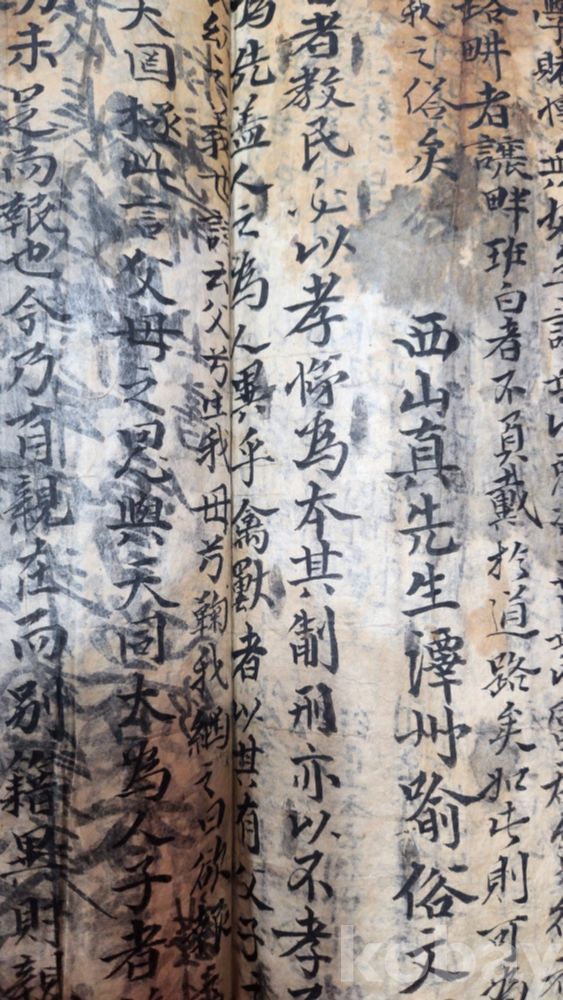 學賭博無好
路畊者讓畔班白者不負戴於道路矣如此則可為
之俗矣
西山真先生潭州喻俗文
者教民必以孝悌為本其制刑亦以不孝
為先盖人之為人異乎禽獸者以其有父子
章也詩云父兮生我母兮鞠我継之曰欲報
天罔極此言父母之恩與天同大為人子者
未足而報也今乃有親在而別籍異財親